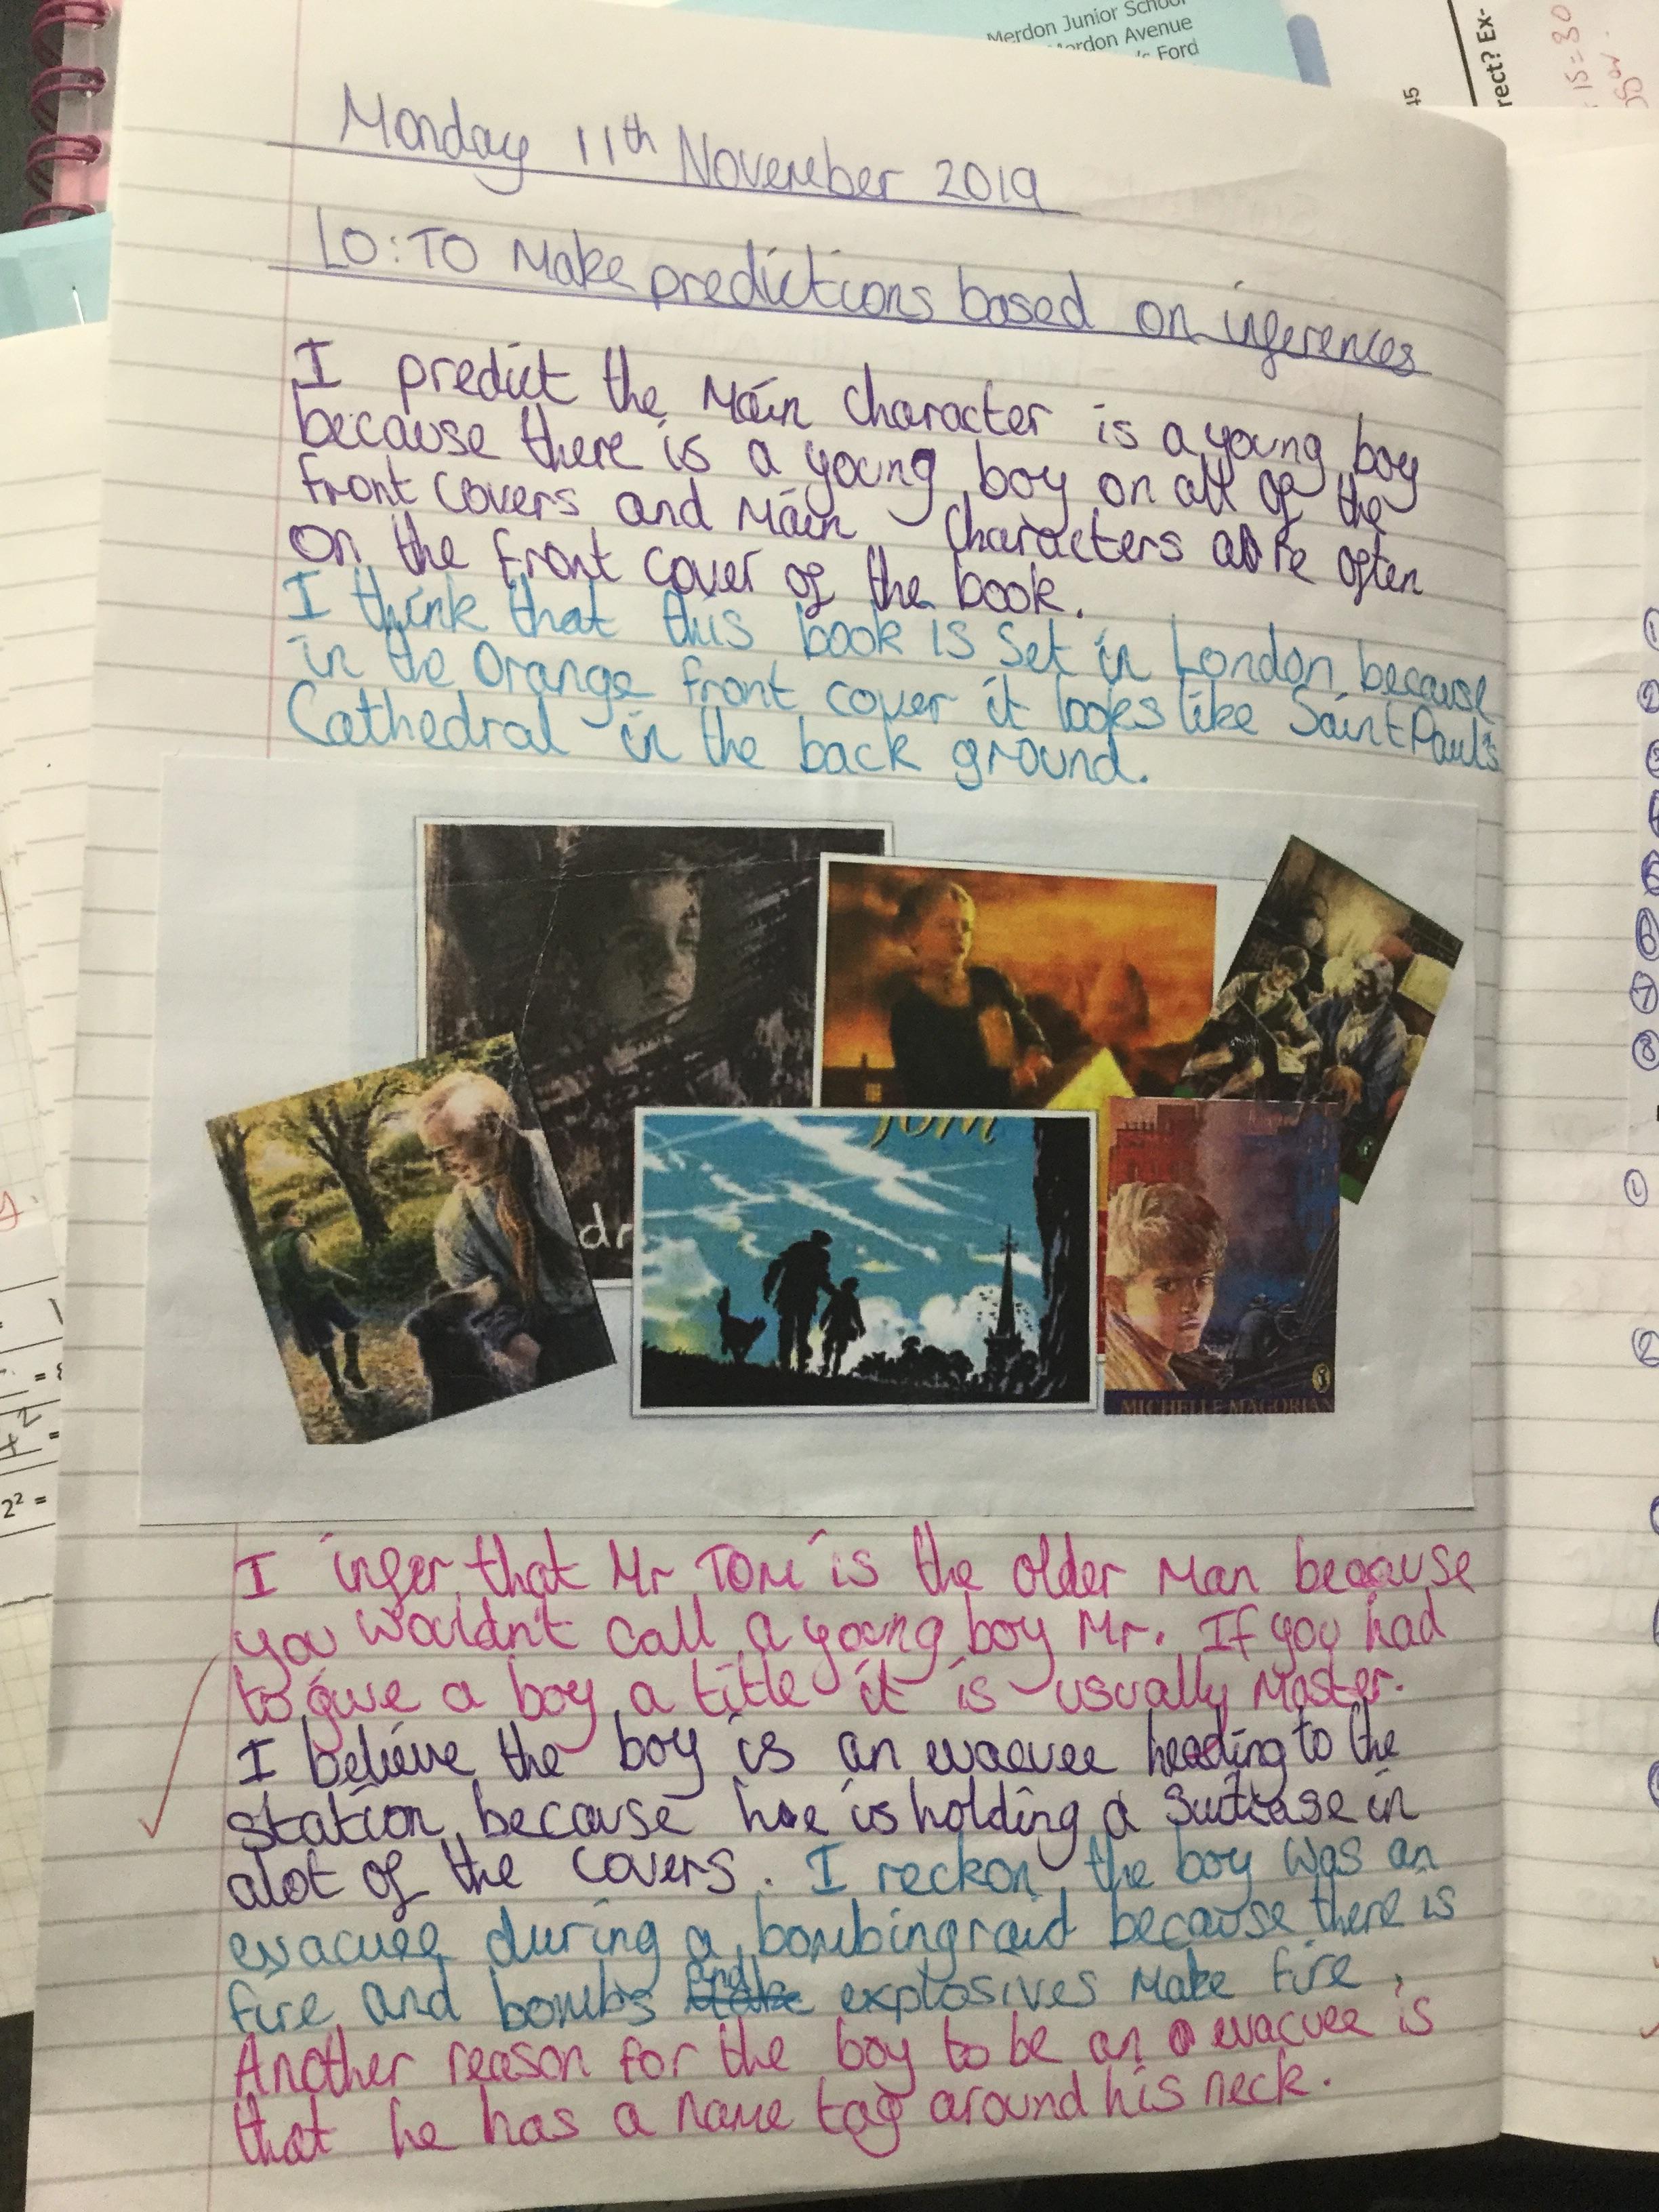 Merdon Junior School
Merdon Avenue
's Ford
rect? Ex-
45
15=30
Monday 11th November 2019
LO: TO Make predictions based on inferences
I predict the Main character is a young boy
because there is a young boy on all of the
front covers and Main characters are often
on the front cover of the book.
I think that this book is set in London because
in the Orange front cover it looks like Saint Paul's
Cathedral in the back ground.
TOM
dr
MICHELLE MAGORIAN
I infer that Mr TOM is the older Man because
you wouldn't call a young boy Mr. If you had
to give a boy a title it is usually Master.
I believe the boy is an evacuee heading to the
station because he is holding a suitcase in
alot of the covers. I reckon the boy was an
evacuee during a bombing raid because there is
fire and bombs and explosives Make fire.
Another reason for the boy to be an evacuee is
that he has a name tag around his neck.
2² =
1
2
3
4
5
6
7
8
1
2